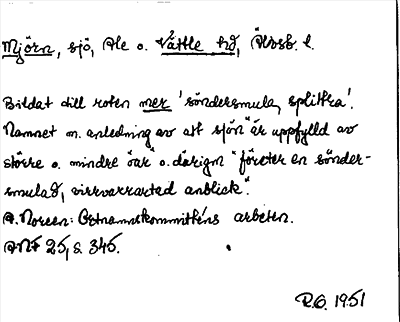 Mjörn, sjö, Ale o. Vättle hd, Älvsb. l.
Bildat till roten mer 'söndersmula, splittra'.
Namnet m. anledning av att sjön "är uppfylld av
större o. mindre öar" o. därigm "företer en sönder-
smulad, virrvarrartad anblick".
A. Noreen: Ortnamnskommitténs arbeten.
ANF 25, s. 345.
R.O. 1951